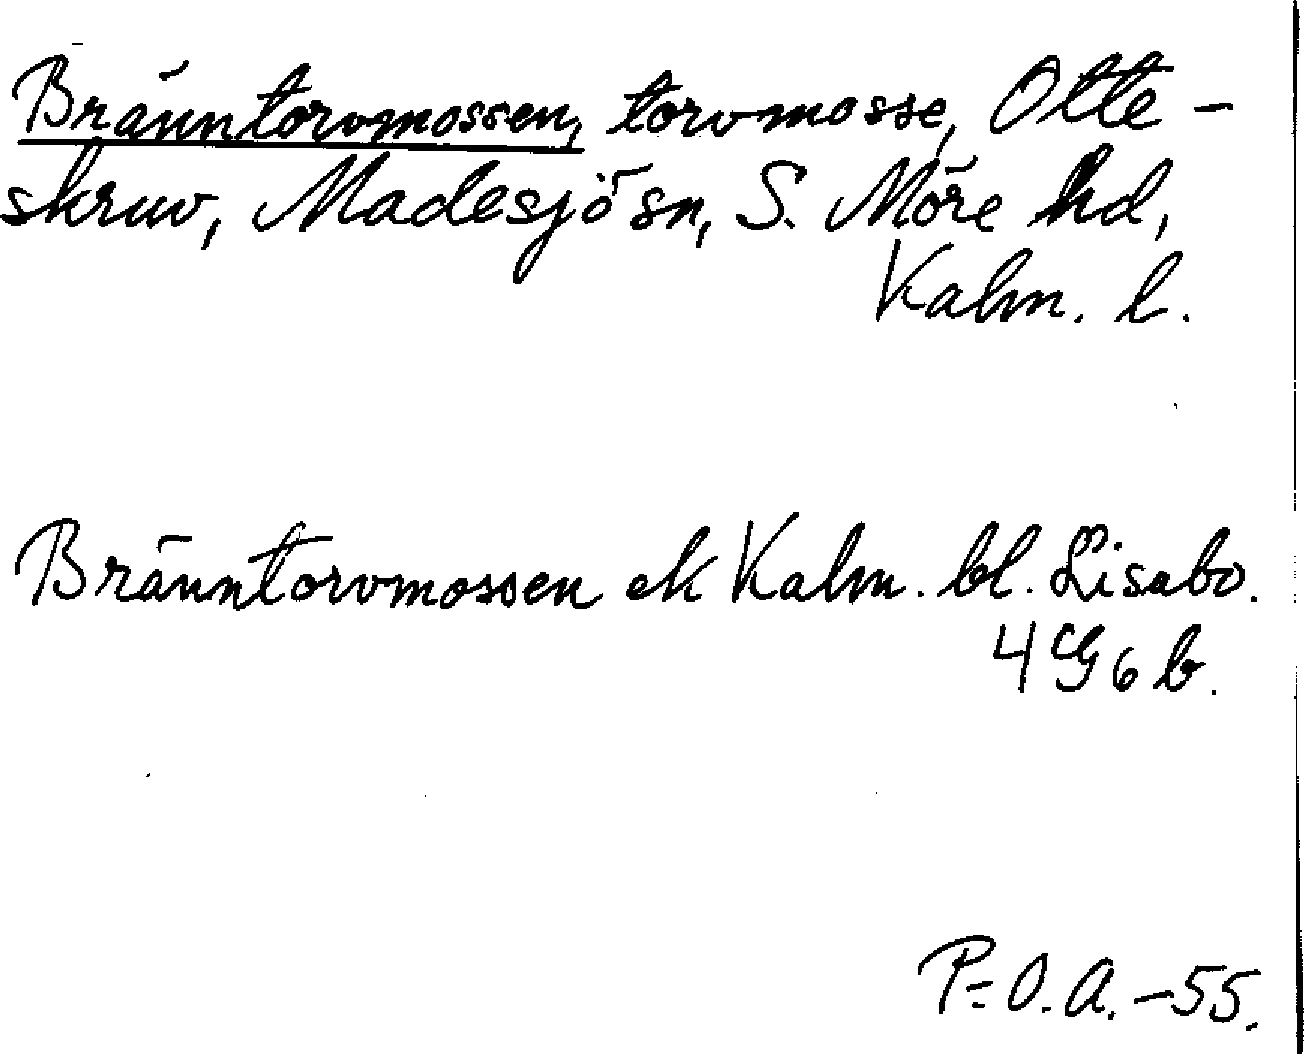 Bränntorvmossen, torvmosse, Otte-
skruv, Madesjö sn, S. Möre hd,
Kalm. l.
Bränntorvmossen ek Kalm. bl. Lisabo.
4 G 6 b.
P-O.A.-55.